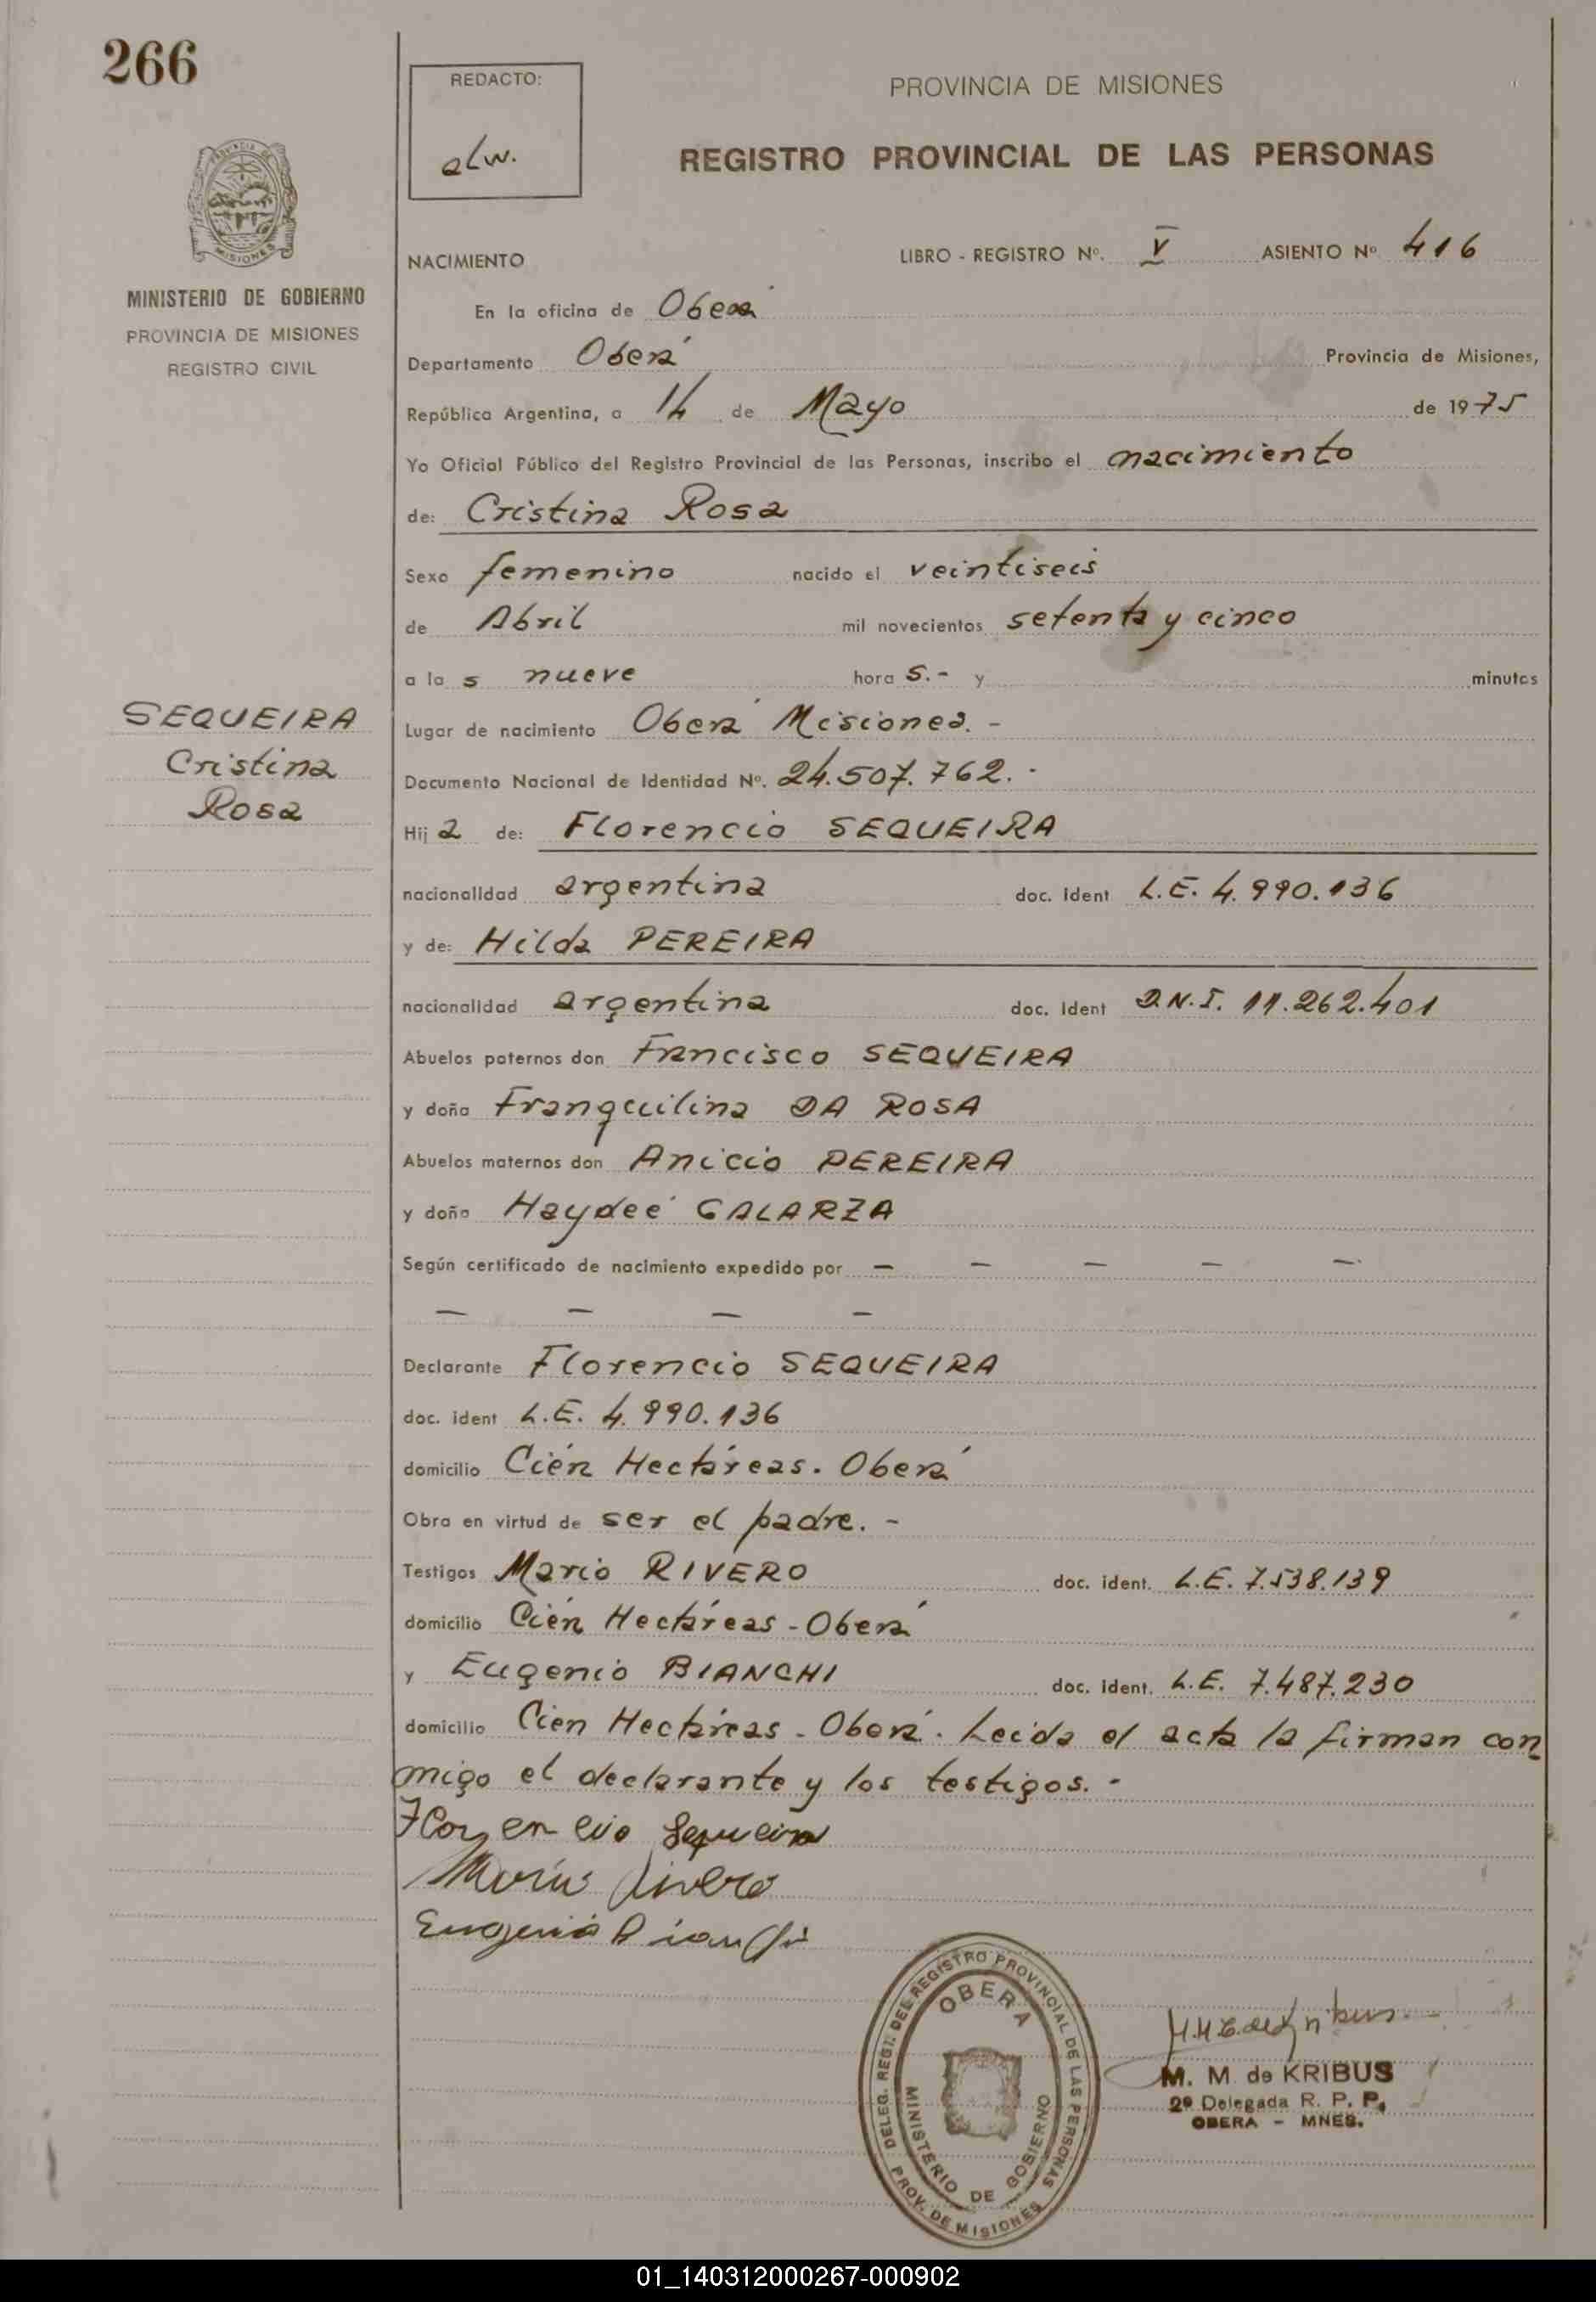 266
REDACTO:
elw.
PROVINCIA DE MISIONES
REGISTRO PROVINCIAL DE LAS PERSONAS
PROVINCIA DE
MISIONES
MINISTERIO DE GOBIERNO
PROVINCIA DE MISIONES
REGISTRO CIVIL
NACIMIENTO LIBRO - REGISTRO Nº. V ASIENTO Nº 416
En la oficina de Oberá
Departamento Oberá Provincia de Misiones,
República Argentina, a 14 de Mayo de 1975
Yo Oficial Público del Registro Provincial de las Personas, inscribo el nacimiento
de: Cristina Rosa
Sexo femenino nacido el veintiseis
de Abril mil novecientos setenta y cinco
a la s nueve hora s.- y minutos
SEQUEIRA
Cristina
Rosa
Lugar de nacimiento Oberá Misiones. -
Documento Nacional de Identidad Nº. 24.507.762. -
Hij a de: Florencio SEQUEIRA
nacionalidad argentina doc. ident L.E. 4.990.136
y de: Hilda PEREIRA
nacionalidad argentina doc. Ident D.N.I. 11.262.401
Abuelos paternos don Francisco SEQUEIRA
y doña Franquilina DA ROSA
Abuelos maternos don Anicio PEREIRA
y doña Haydeé GALARZA
Según certificado de nacimiento expedido por — — — — —
— — — —
Declarante Florencio SEQUEIRA
doc. ident L.E. 4.990.136
domicilio Cién Hectáreas. Oberá
Obra en virtud de ser el padre. -
Testigos Mario RIVERO doc. ident. L.E. 7.538.139
domicilio Cién Hectáreas - Oberá
y Eugenio BIANCHI doc. ident. L.E. 7.487.230
domicilio Cien Hectáreas - Oberá. Leida el acta la firman con
migo el declarante y los testigos. -
Florencio Sequeira
Mario Rivero
Eugenio Bianchi
DELEG. REGI. DEL REGISTRO PROVINCIAL DE LAS PERSONAS
OBERA
MINISTERIO DE GOBIERNO
PROV. DE MISIONES
M. M. de KRIBUS
2ª Delegada R. P. P.
OBERA - MNES.
01_140312000267-000902